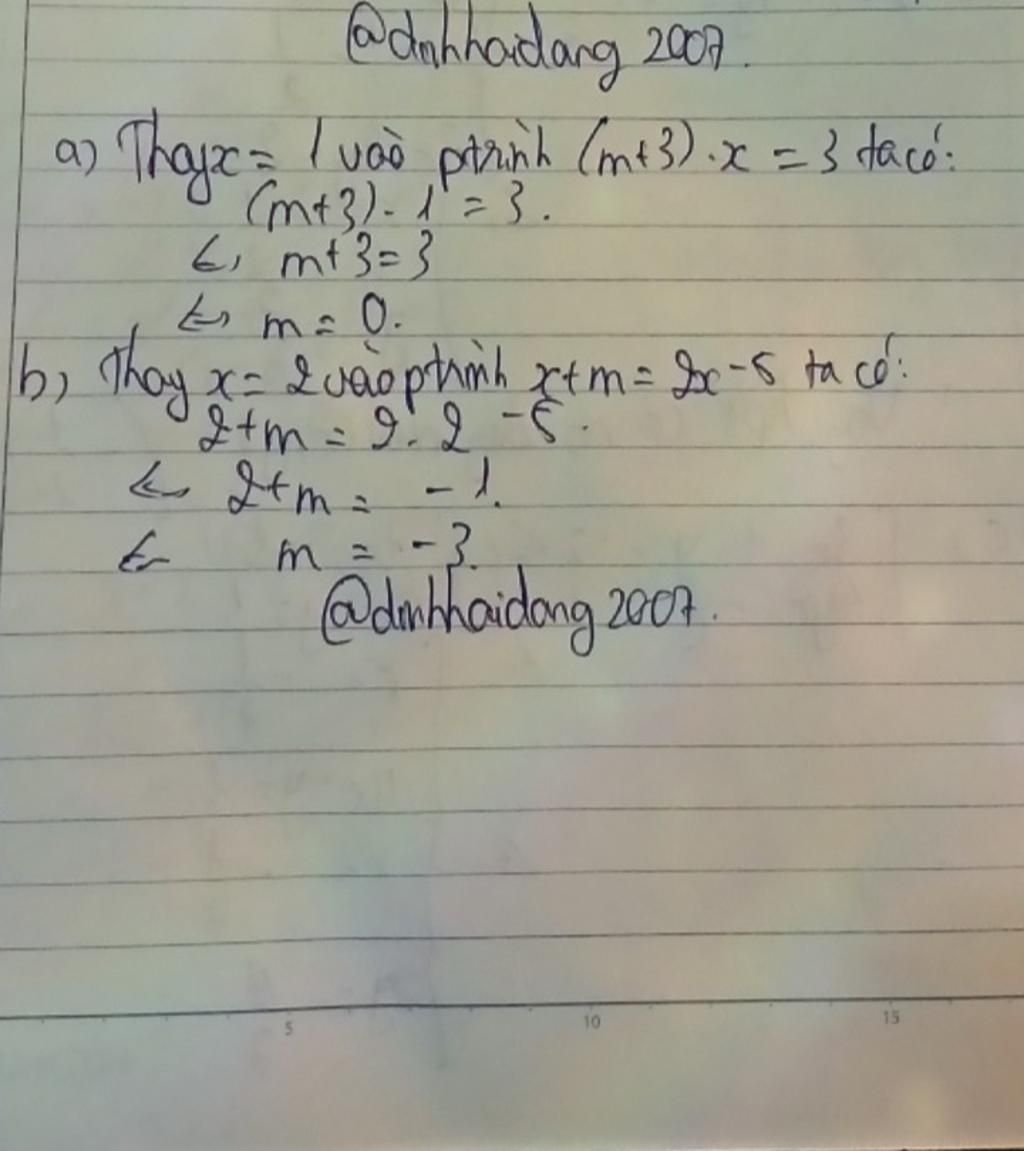 @dnhhaidang 2007.
a) Thay x = 1 vào ptrình (m+3).x = 3 ta có:
(m+3).1 = 3.
<=> m+3=3
<=> m = 0.
b) Thay x = 2 vào ptrình x+m = 2x-5 ta có:
2+m = 2.2 -5.
<=> 2+m = -1.
<=> m = -3.
@dnhhaidang 2007.
5 10 15